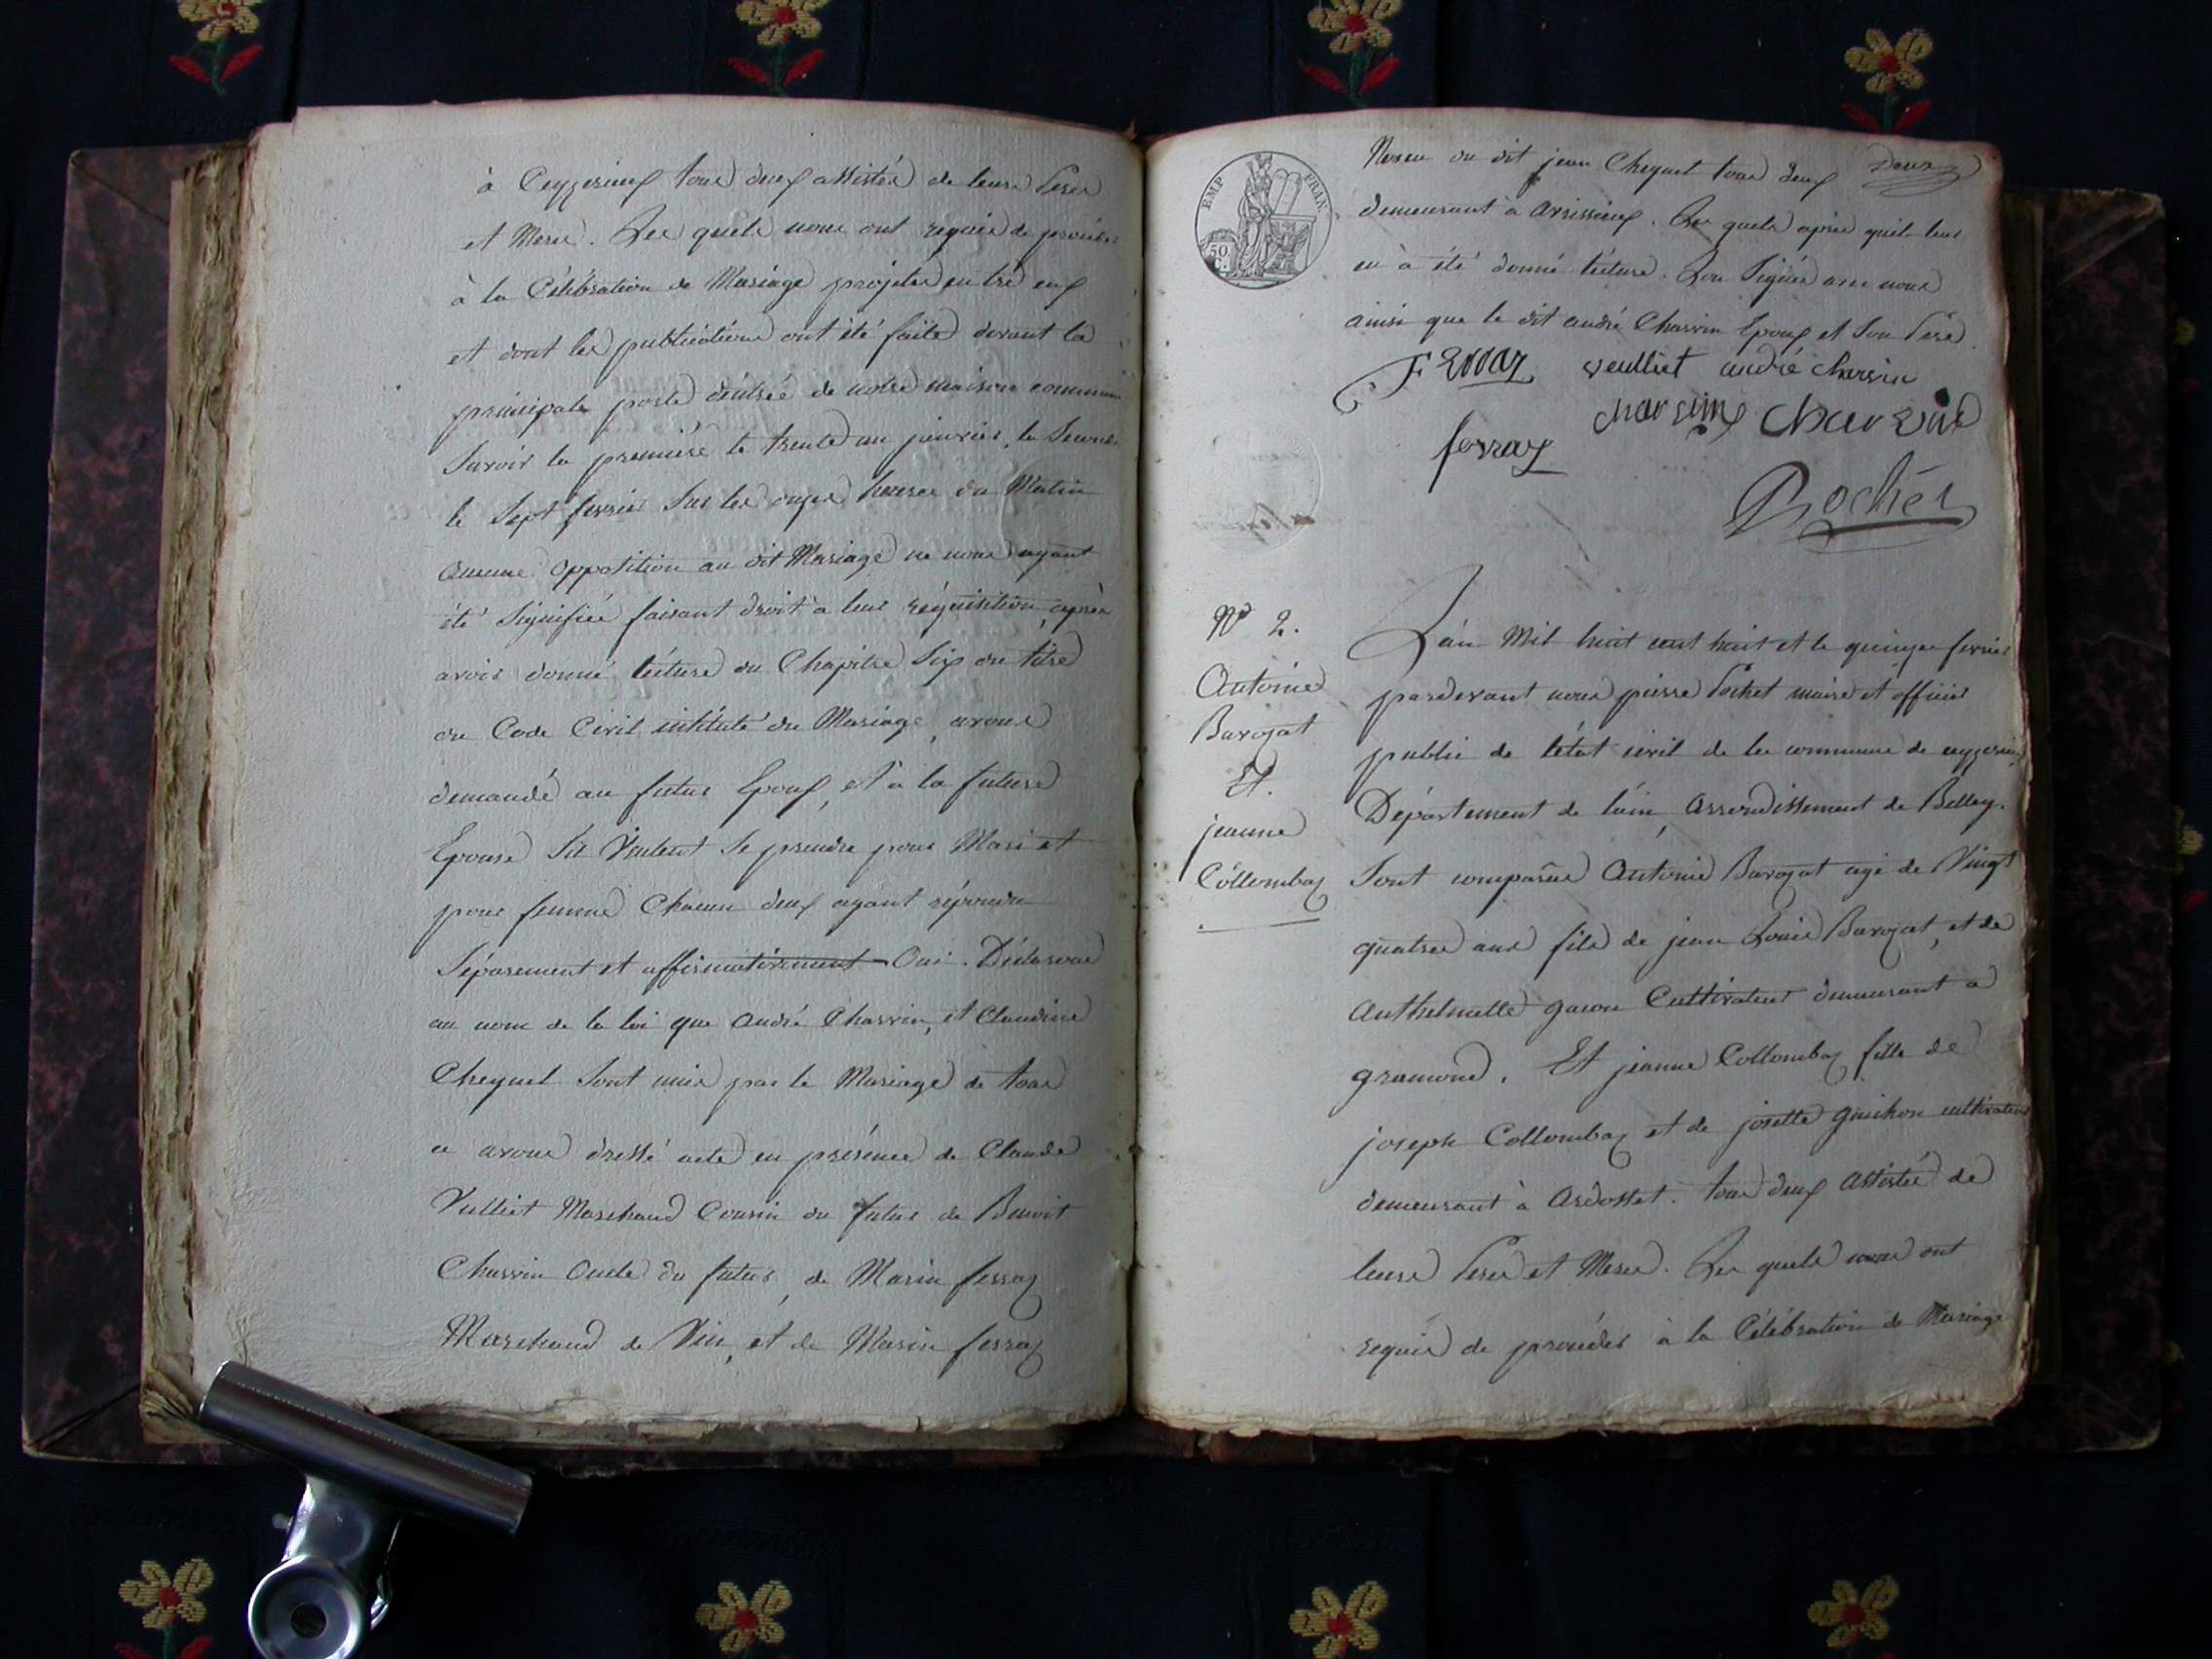 à Ceyzerieux tous deux assistés de leurs Peres
et Meres. Les quels nous ont requis de procéder
à la Célébration de Mariage projeté entre eux
et dont les publications ont été faite devant la
principale porte d'entrée de notre maison commune
Savoir la première le trente un janvier, la Seconde
le Sept fevrier Sur les onze heures du Matin
aucune opposition au dit Mariage ne nous ayant
été Signifiée faisant droit à leur réquisition, après
avoir donné lécture du Chapitre Six du titre
du Code Civil intitulé du Mariage, avons
demandé au futur Epoux, et à la future
Epouse S'il Veulent Se prendre pour Mari et
pour femme Chacun deux ayant répondu
Séparement et affirmativement Oui. Déclarons
au nom de la loi que André Charvin, et Claudine
Chequet Sont unis par le Mariage de tous
ce avons dressé acte en présence de Claude
Vulliet Marchand Cousin du futur de Benoit
Charvin Oncle du futur, de Marin ferraz
Marchand de Vin, et de Marin ferraz
Neveu du dit jean Chequet tous deux
Deux
demeurant à avrissieux. Les quels après quil leur
en à été donné lécture. Lon Signés avec nous
ainsi que le dit andré Charvin Epoux et Son Pere.
EMP FRAN.
50 C.
FERRAZ veulliet andré charvin
charvin charvin
ferraz
Pochet
N° 2.
Antoine
Barozat
Et.
jeanne
Collombaz
L'an Mil huit cent huit et le quinze fevrier
pardevant nous pierre Pochet maire et officier
public de létat civil de la commune de ceyzerieu,
Département de l'ain, arrondissement de Belley.
Sont comparus Antoine Barozat agé de Vingt
quatres ans fils de jean Louis Barozat, et de
Anthelmette Cultivateur demeurant a
gramond. Et jeanne Collombaz fille de
joseph Collombaz et de josette guichon cultivateur
demeurant à Ardosset. tous deux assistés de
leurs Peres et Meres. Les quels nous ont
requis de procéder à la Célébration de Mariage